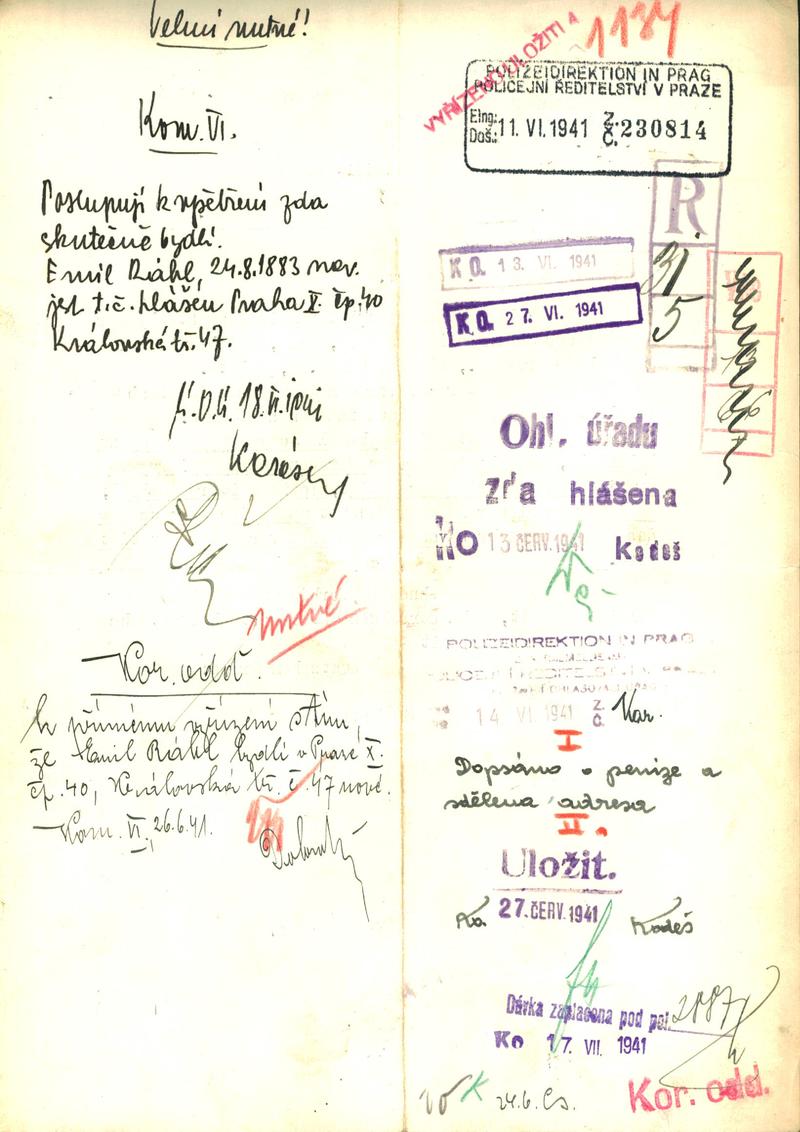 Velmi nutné!
Kom. VI.
Postupuji k vyšetření zda
skutečně bydlí.
Emil Rákl, 24.8.1883 nar.
jest t.č. hlášen Praha X čp. 40
Královská tř. 47.
18.VI.
nutné
Kor. odd.
že Emil Rákl bydlí v Praze X.
čp. 40, Královská tř. č. 47 nové.
Kom. VI, 26.6.41.
1134
VYŘÍZENO ULOŽITI A
POLIZEIDIREKTION IN PRAG
POLICEJNÍ ŘEDITELSTVÍ V PRAZE
Eing.:
Doš.: 11. VI. 1941 Z. Č. 230814
R
31
5
K.O. 13. VI. 1941
K.O. 27. VI. 1941
Ohl. úřadu
zda hlášena
KO 13 ČERV. 1941 kodeš
POLIZEIDIREKTION IN PRAG
14 VI. 1941 Z. Č. Kor.
I
Dopsáno o peníze a
sdělena adresa
II.
Uložit.
Ko. 27. ČERV. 1941 Kodeš
Dávka zaplacena pod pol.
Ko 17. VII. 1941
K 24.6.
Kor. odd.